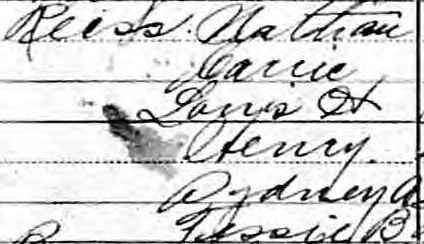 Reiss. Nathan
Carrie
Louis H
Henry.
Sydney A
Tessie B